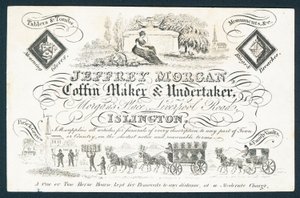 Tablets & Tombs,
Monuments, &c.
JEFFREY MORGAN,
Coffin Maker & Undertaker,
Morgan's Place, Liverpool Road,
ISLINGTON.
supplies all articles for funerals of every description to any part of Town
& Country, on the shortest notice and reasonable terms
Family Vaults
A One or Two Horse Hearse kept for Removals to any distance, at a Moderate Charge.